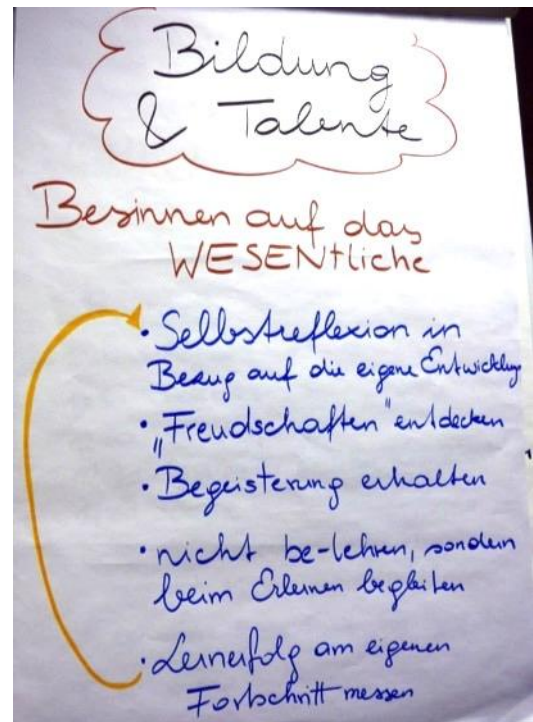 Bildung
& Talente
Besinnen auf das
WESENtliche
• Selbstreflexion in
Bezug auf die eigene Entwicklung
• „Freudschaften" entdecken
• Begeisterung erhalten
• nicht be-lehren, sondern
beim Erlernen begleiten
• Lernerfolg am eigenen
Fortschritt messen